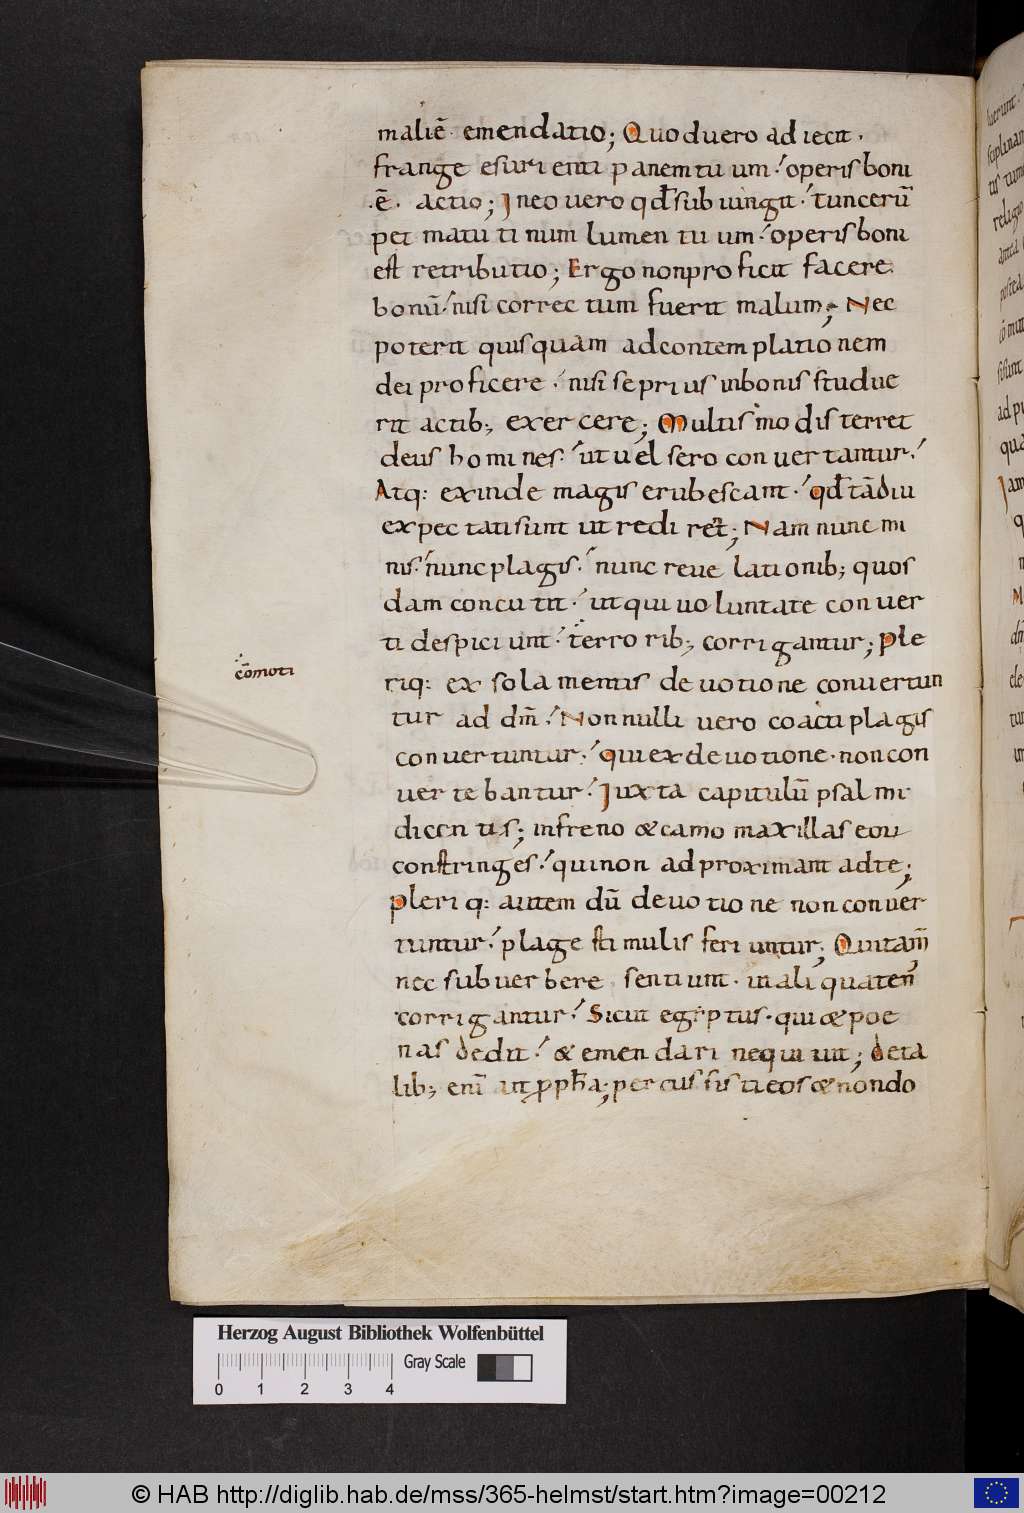 maliē· emendatio; Quod uero adiecit·
frange esurienti panem tuum·' operis boni
·ē· actio; In eo uero qđ subiungit·' tunc erū
pet matutinum lumen tuum·' operis boni
est retributio; Ergo non proficit facere
bonū·' nisi correctum fuerit malum; Nec
poterit quisquam ad contemplationem
dei proficere·' nisi se prius in bonis studue
rit actib; exercere; Multis modis terret
deus homines·' ut uel sero conuertantur·'
Atq: exinde magis erubescant·' qđ tādiu
expectati sunt ut redirent; Nam nunc mi
nis·' nunc plagis·' nunc reuelationib; quos
dam concutit·' ut qui uoluntate conuer
ti despiciunt·' terrorib; corrigantur; Ple
cōmoti
riq: ex sola mentis deuotione conuertun
tur ad dm̄·' Nonnulli uero coacti plagis
conuertuntur·' qui ex deuotione· non con
uertebantur·' Iuxta capitulū psalmi
dicentis; in freno & camo maxillas eorum
constringes·' qui non adproximant ad te;
Pleriq: autem dū deuotione non conuer
tuntur·' plage stimulis feriuntur; Qui tam̄
nec sub uerbere sentiunt· in aliquaten
corrigantur·' Sicut egiptus· qui & poe
nas dedit·' & emendari nequiuit; de ta
lib; enī ait ꝓpħa; percussisti eos & non do
Herzog August Bibliothek Wolfenbüttel
0 1 2 3 4
Gray Scale
© HAB http://diglib.hab.de/mss/365-helmst/start.htm?image=00212